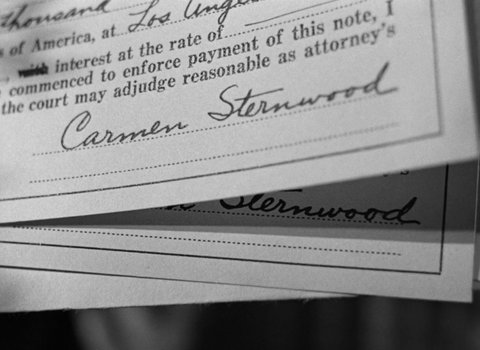 thousand
s of America, at Los Angel
with interest at the rate of
commenced to enforce payment of this note, I
the court may adjudge reasonable as attorney's
Carmen Sternwood
's
Sternwood